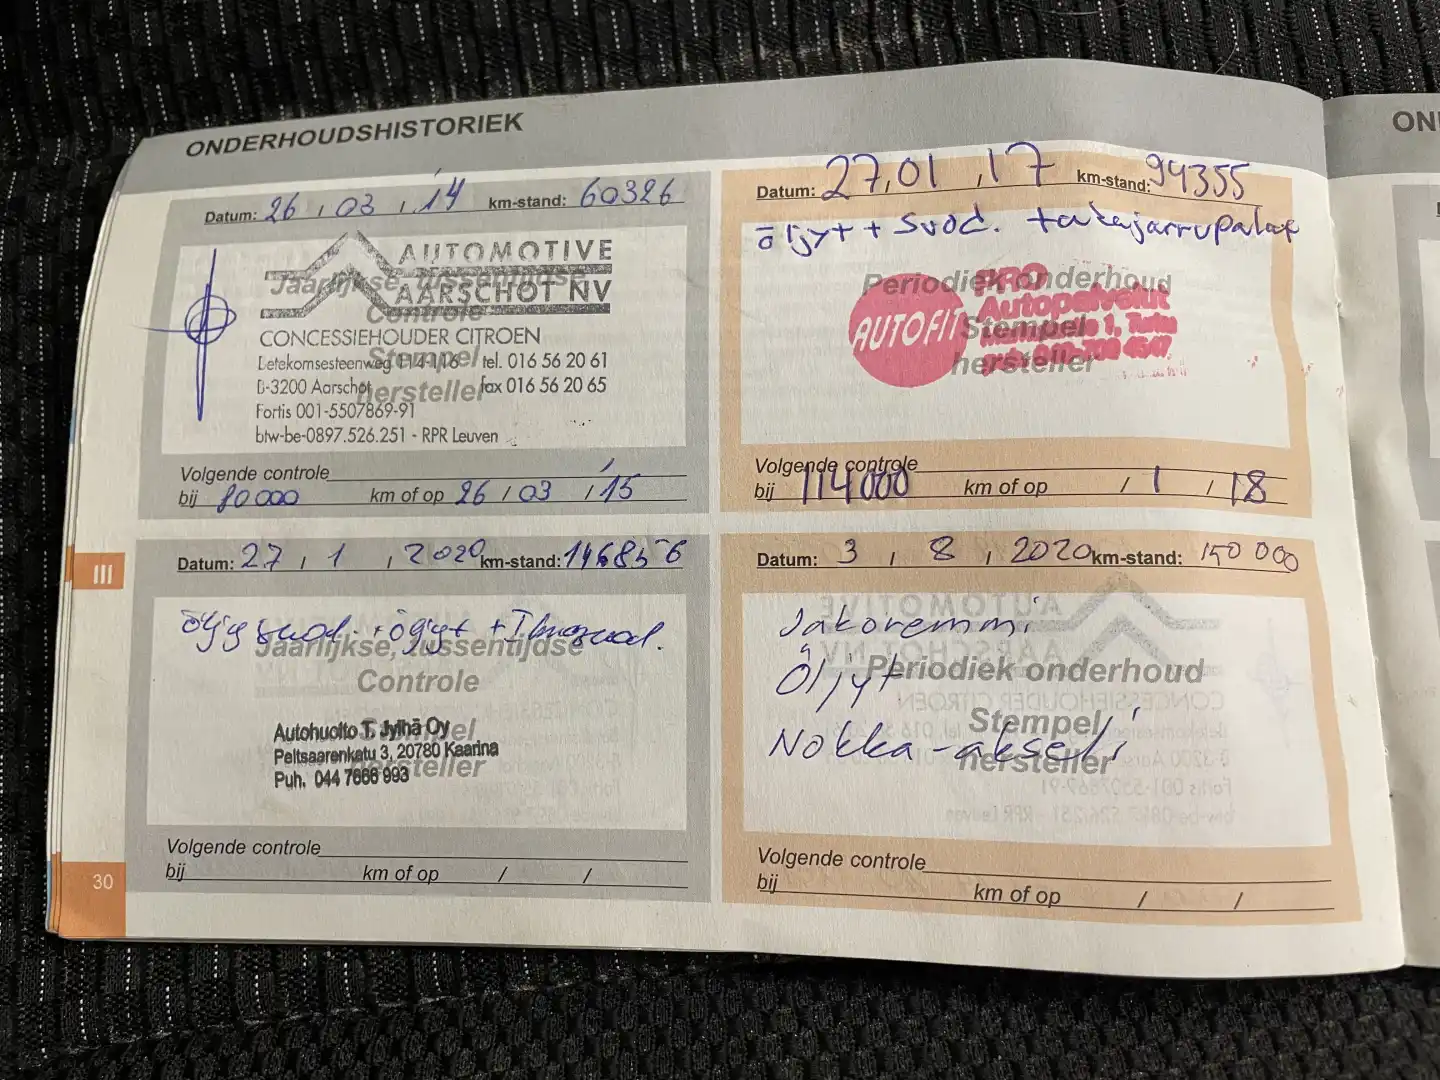 ONDERHOUDSHISTORIEK
Datum: 26 / 03 / 14 km-stand: 60326
AUTOMOTIVE
AARSCHOT NV
Jaarlijkse, tussentijdse
Controle
Stempel
hersteller
CONCESSIEHOUDER CITROEN
Betekomsesteenweg 114-116 tel. 016 56 20 61
B-3200 Aarschot fax 016 56 20 65
Fortis 001-5507869-91
btw-be-0897.526.251 - RPR Leuven
Volgende controle
bij 80000 km of op 26 / 03 / 15
Datum: 27,01 ,17 km-stand: 94355
öljyt + suod. takajarrupalat
Periodiek onderhoud
Stempel
hersteller
AUTOFIT
PRO
Autopalvelut
1, Turku
Volgende controle
bij 114000 km of op / 1 / 18
Datum: 27 / 1 , 2020 km-stand: 146856
öljysuod. + öljyt +
Jaarlijkse, tussentijdse
Controle
Stempel
hersteller
Autohuolto T. Jylhä Oy
Peltsaarenkatu 3, 20780 Kaarina
Puh. 044 7666 993
Volgende controle
bij km of op / /
Datum: 3 / 8 , 2020 km-stand: 150 000
Jakoremmi
Öljyt
Nokka-akseli
Periodiek onderhoud
Stempel
hersteller
Volgende controle
bij km of op / /
III
30
ON